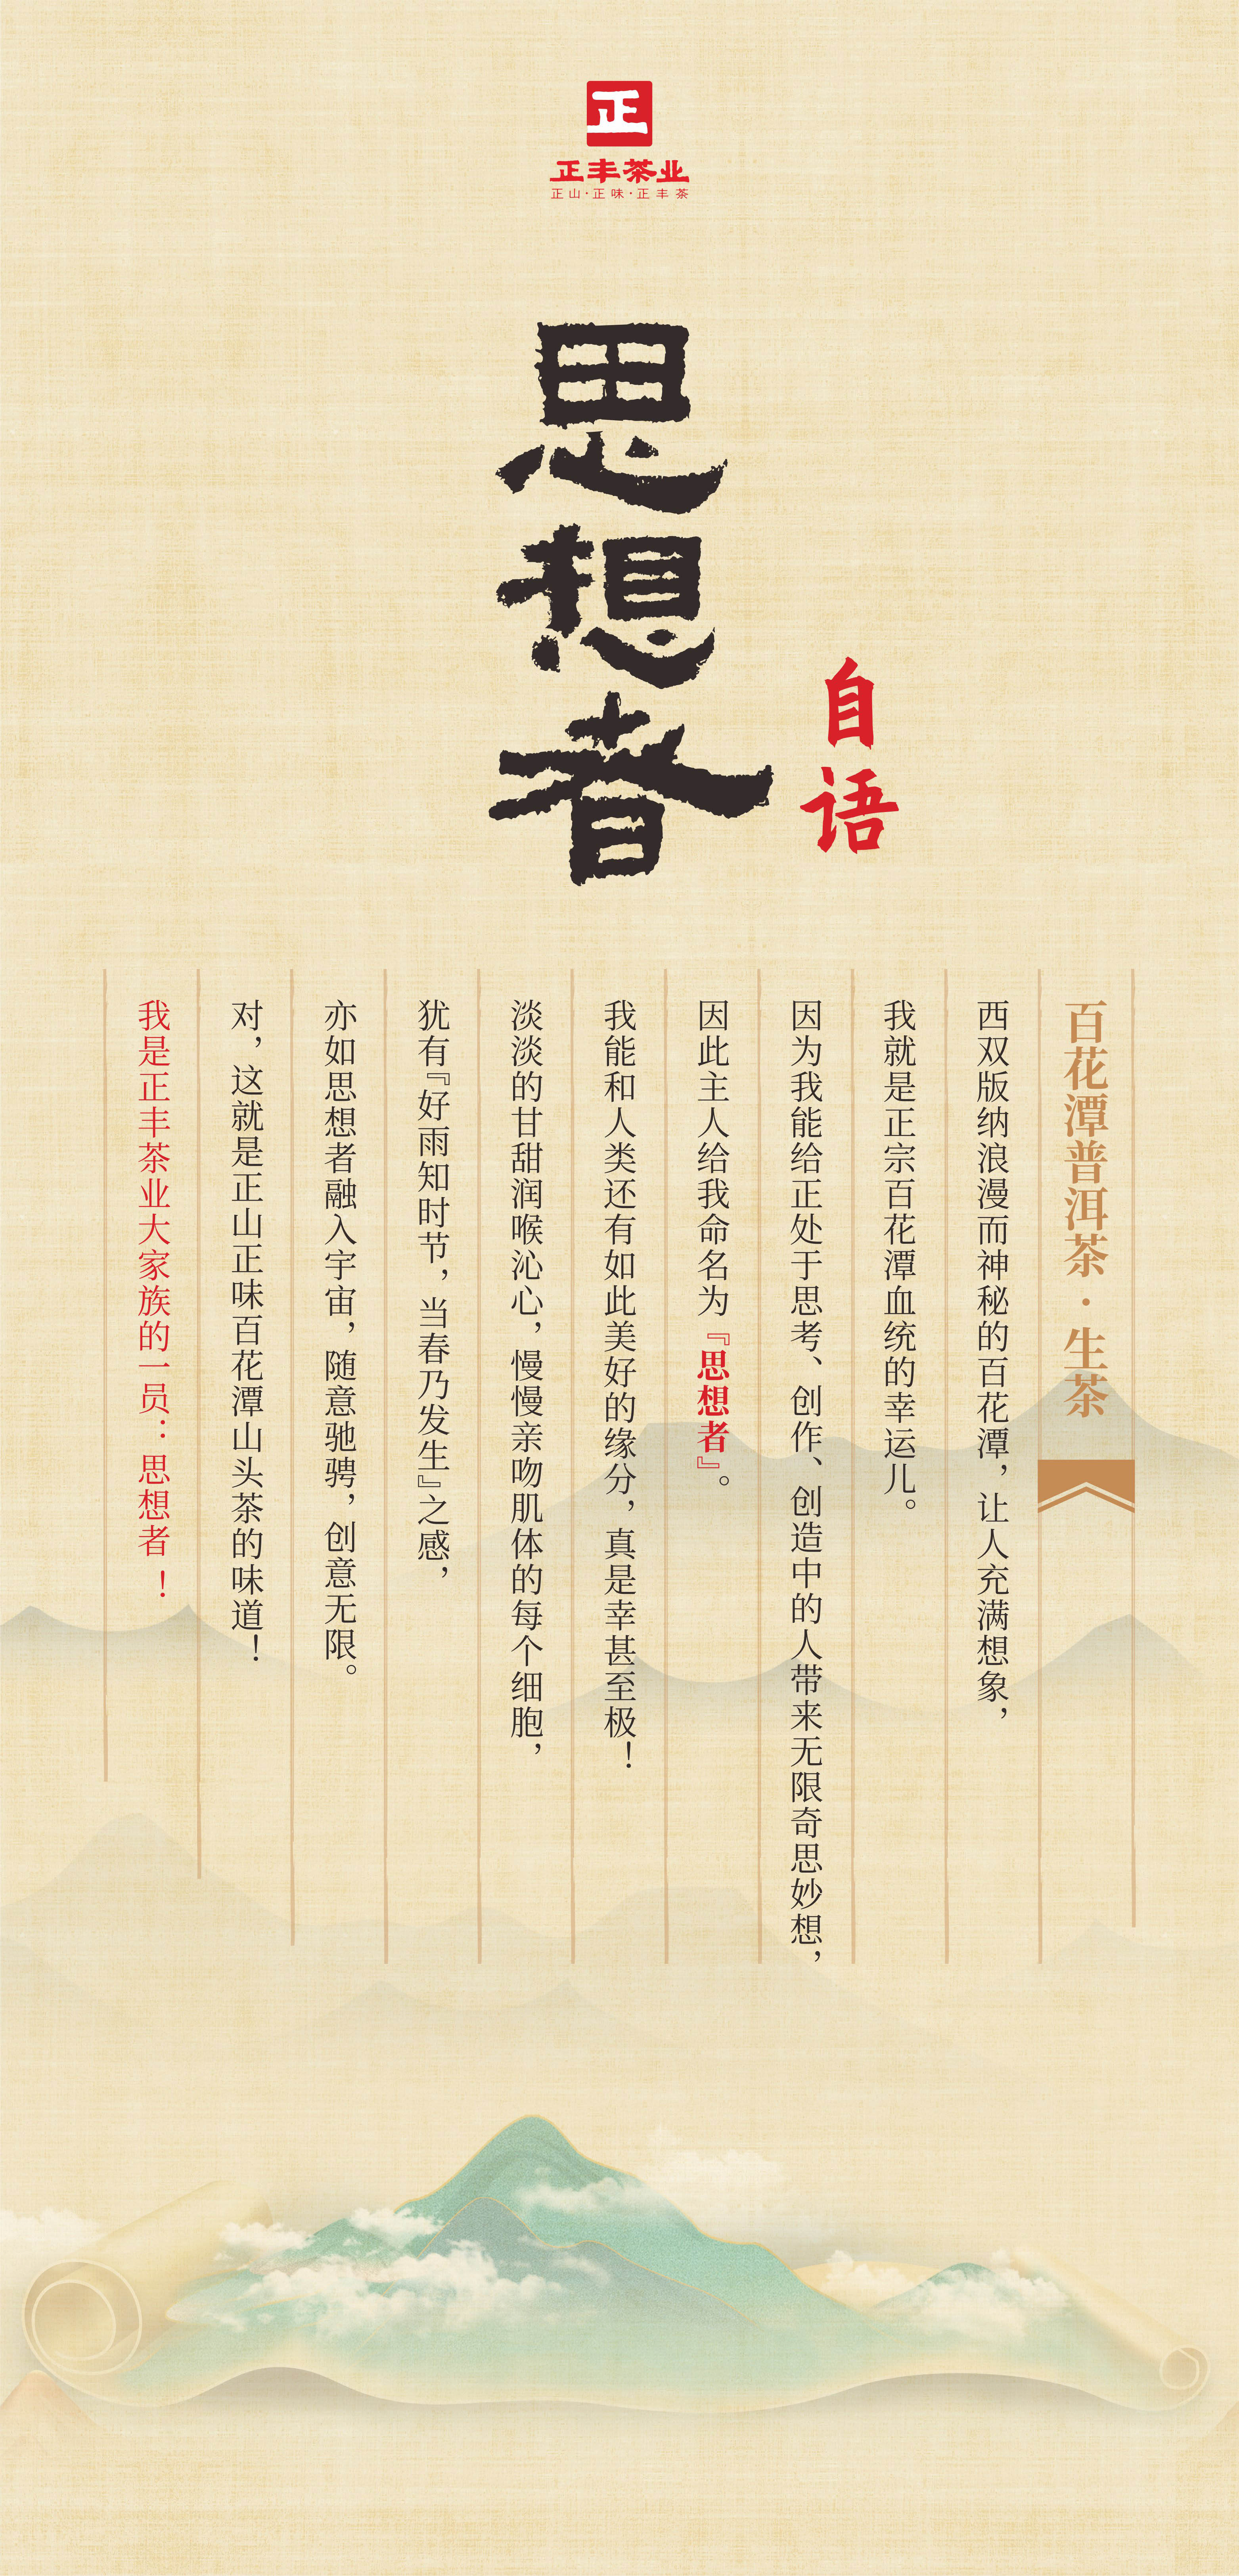 正
正丰茶业
正山·正味·正丰茶
思想者
自语
百花潭普洱茶·生茶
西双版纳浪漫而神秘的百花潭，让人充满想象，
我就是正宗百花潭血统的幸运儿。
因为我能给正处于思考、创作、创造中的人带来无限奇思妙想，
因此主人给我命名为『思想者』。
我能和人类还有如此美好的缘分，真是幸甚至极！
淡淡的甘甜润喉沁心，慢慢亲吻肌体的每个细胞，
犹有『好雨知时节，当春乃发生』之感，
亦如思想者融入宇宙，随意驰骋，创意无限。
对，这就是正山正味百花潭山头茶的味道！
我是正丰茶业大家族的一员：思想者！